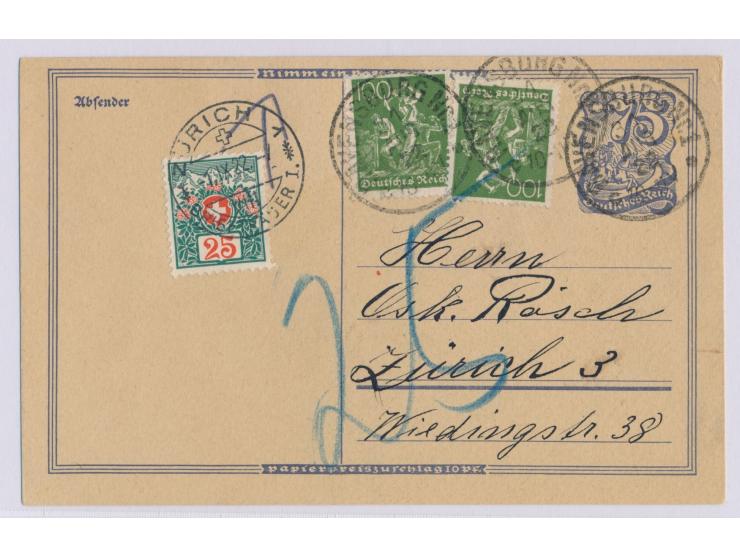 Nimm ein
Absender
ZÜRICH
25
100
Deutsches Reich
100
Deutsches Reich
75
Deutsches Reich
Herrn
Osk. Rösch
Zürich 3
Wiedingstr. 38
25
papierpreiszuschlag 10 Pf.